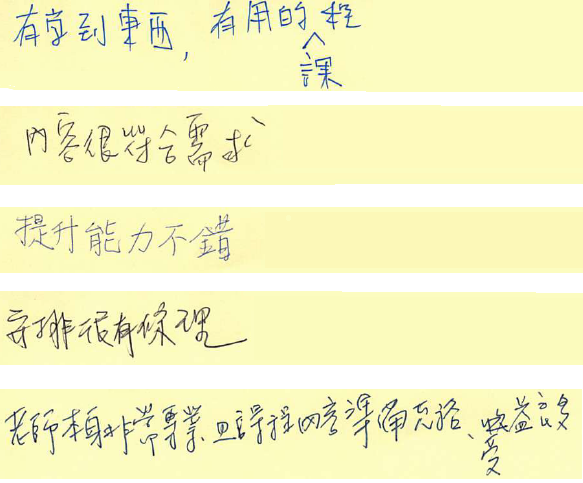 有学到東西，有用的課程
內容很符合需求
提升能力不錯
安排很有條理
老師本身非常專業、且課程內容準備充裕、受益良多